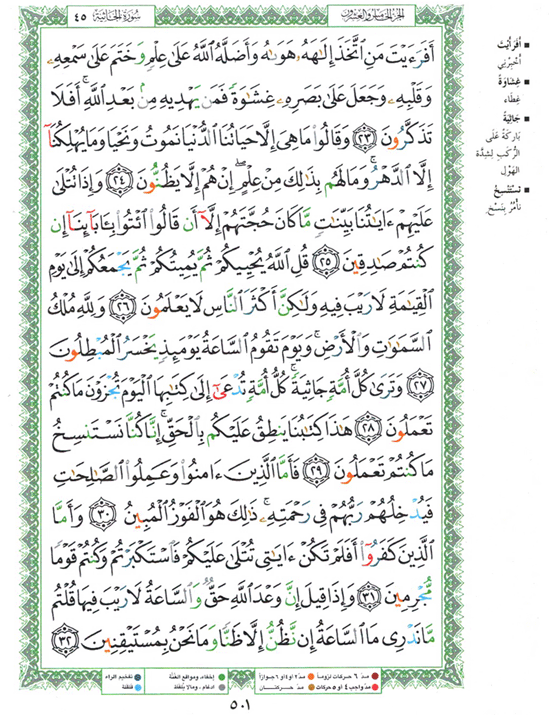 سُورَةُ الجَاثِيَةِ ٤٥
الجُزءُ الخَامِسُ وَالعِشرُونَ
أَفَرَءَيْتَ مَنِ ٱتَّخَذَ إِلَٰهَهُۥ هَوَىٰهُ وَأَضَلَّهُ ٱللَّهُ عَلَىٰ عِلْمٍ وَخَتَمَ عَلَىٰ سَمْعِهِۦ
وَقَلْبِهِۦ وَجَعَلَ عَلَىٰ بَصَرِهِۦ غِشَٰوَةً فَمَن يَهْدِيهِ مِنۢ بَعْدِ ٱللَّهِ ۚ أَفَلَا
تَذَكَّرُونَ ٢٣ وَقَالُوا۟ مَا هِىَ إِلَّا حَيَاتُنَا ٱلدُّنْيَا نَمُوتُ وَنَحْيَا وَمَا يُهْلِكُنَآ
إِلَّا ٱلدَّهْرُ ۚ وَمَا لَهُم بِذَٰلِكَ مِنْ عِلْمٍ ۖ إِنْ هُمْ إِلَّا يَظُنُّونَ ٢٤ وَإِذَا تُتْلَىٰ
عَلَيْهِمْ ءَايَٰتُنَا بَيِّنَٰتٍ مَّا كَانَ حُجَّتَهُمْ إِلَّآ أَن قَالُوا۟ ٱئْتُوا۟ بِـَٔابَآئِنَآ إِن
كُنتُمْ صَٰدِقِينَ ٢٥ قُلِ ٱللَّهُ يُحْيِيكُمْ ثُمَّ يُمِيتُكُمْ ثُمَّ يَجْمَعُكُمْ إِلَىٰ يَوْمِ
ٱلْقِيَٰمَةِ لَا رَيْبَ فِيهِ وَلَٰكِنَّ أَكْثَرَ ٱلنَّاسِ لَا يَعْلَمُونَ ٢٦ وَلِلَّهِ مُلْكُ
ٱلسَّمَٰوَٰتِ وَٱلْأَرْضِ ۚ وَيَوْمَ تَقُومُ ٱلسَّاعَةُ يَوْمَئِذٍ يَخْسَرُ ٱلْمُبْطِلُونَ
٢٧ وَتَرَىٰ كُلَّ أُمَّةٍ جَاثِيَةً ۚ كُلُّ أُمَّةٍ تُدْعَىٰٓ إِلَىٰ كِتَٰبِهَا ٱلْيَوْمَ تُجْزَوْنَ مَا كُنتُمْ
تَعْمَلُونَ ٢٨ هَٰذَا كِتَٰبُنَا يَنطِقُ عَلَيْكُم بِٱلْحَقِّ ۚ إِنَّا كُنَّا نَسْتَنسِخُ
مَا كُنتُمْ تَعْمَلُونَ ٢٩ فَأَمَّا ٱلَّذِينَ ءَامَنُوا۟ وَعَمِلُوا۟ ٱلصَّٰلِحَٰتِ
فَيُدْخِلُهُمْ رَبُّهُمْ فِى رَحْمَتِهِۦ ۚ ذَٰلِكَ هُوَ ٱلْفَوْزُ ٱلْمُبِينُ ٣٠ وَأَمَّا
ٱلَّذِينَ كَفَرُوٓا۟ أَفَلَمْ تَكُنْ ءَايَٰتِى تُتْلَىٰ عَلَيْكُمْ فَٱسْتَكْبَرْتُمْ وَكُنتُمْ قَوْمًا
مُّجْرِمِينَ ٣١ وَإِذَا قِيلَ إِنَّ وَعْدَ ٱللَّهِ حَقٌّ وَٱلسَّاعَةُ لَا رَيْبَ فِيهَا قُلْتُم
مَّا نَدْرِى مَا ٱلسَّاعَةُ إِن نَّظُنُّ إِلَّا ظَنًّا وَمَا نَحْنُ بِمُسْتَيْقِنِينَ ٣٢
أَفَرَأَيْتَ
أَخْبِرْنِي
غِشَاوَةً
غِطَاءً
جَاثِيَةً
بَارِكَةً عَلَى
الرُّكَبِ لِشِدَّةِ
الهَوْلِ
نَسْتَنسِخُ
نَأْمُرُ بِنَسْخِ
مدّ ٦ حركات لزوماً مدّ ٢ أو ٤ أو ٦ جوازاً إخفاء، ومواقع الغنّة تفخيم الراء
مدّ واجب ٤ أو ٥ حركات مدّ حركتان ادغام، وما لا يُلفظ قلقلة
٥٠١